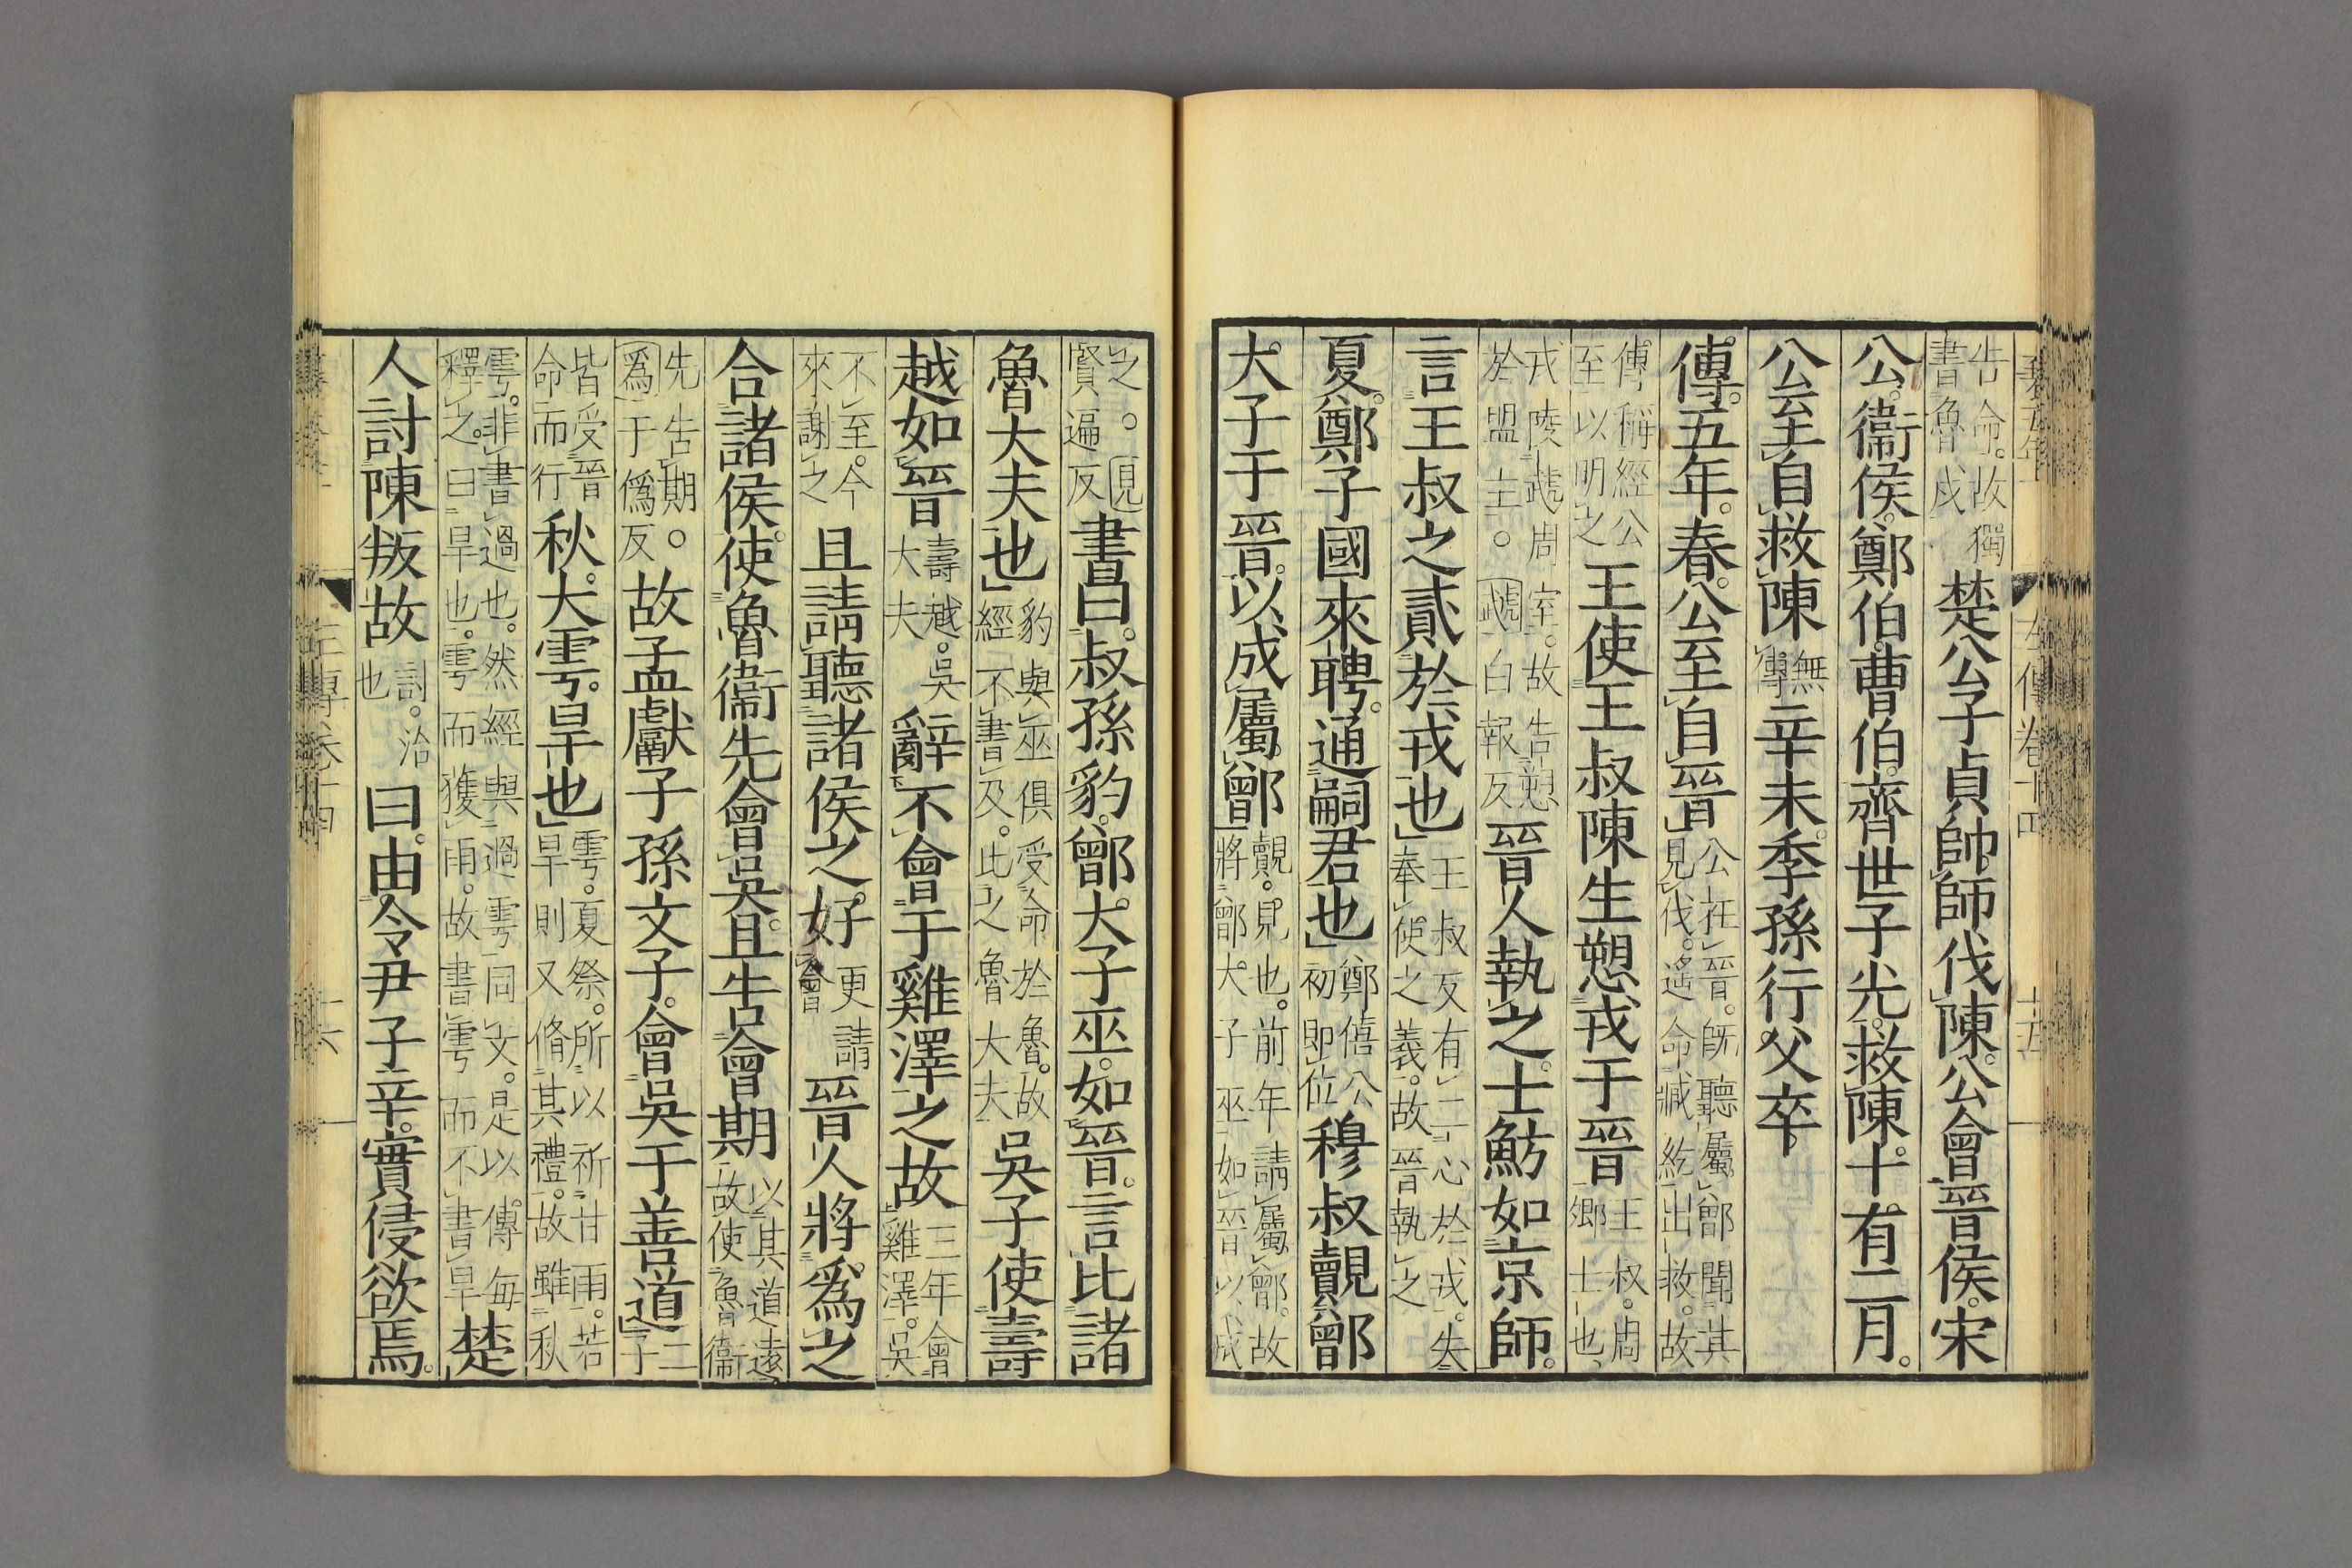 告命。故獨書魯戍楚公子貞帥師伐陳。公會晉侯。宋
公。衞侯。鄭伯。曹伯。齊世子光。救陳。十有二月。
公至自救陳無傳辛未。季孫行父卒。
傳。五年。春。公至自晉公在晉。旣聽屬鄫聞其見伐。遙命臧紇出救。故
傳稱經公至以明之王使王叔陳生愬戎于晉王叔。周卿士也、
戎陵虣周室。故告愬於盟主。虣白報反晉人執之。士魴如京師。
言王叔之貳於戎也王叔反有二心於戎。失奉使之義。故晉執之
夏。鄭子國來聘。通嗣君也鄭僖公初卽位穆叔覿鄫
大子于晉。以成屬鄫覿。見也。前年請屬鄫。故將鄫大子巫如晉以成
之。見賢遍反書曰。叔孫豹。鄫大子巫。如晉。言比諸
魯大夫也豹與巫俱受命於魯。故經不書及。此之魯大夫吳子使壽
越如晉壽越。吳大夫辭不會于雞澤之故三年會雞澤。吳
不至。今來謝之且請聽諸侯之好更請會晉人將爲之
合諸侯。使魯衞先會吳。且告會期以其道遠故使魯衞
先告期。爲于僞反故孟獻子孫文子。會吳于善道二子
皆受晉命而行秋。大雩。旱也雩。夏祭。所以祈甘雨。若旱則又脩其禮。故雖秋
雩。非書過也。然經與過雩同文。是以。傳每釋之。曰旱也。雩而獲雨。故書雩而不書旱楚
人討陳叛故討。治也曰。由令尹子辛。實侵欲焉。
左傳卷十四
十五